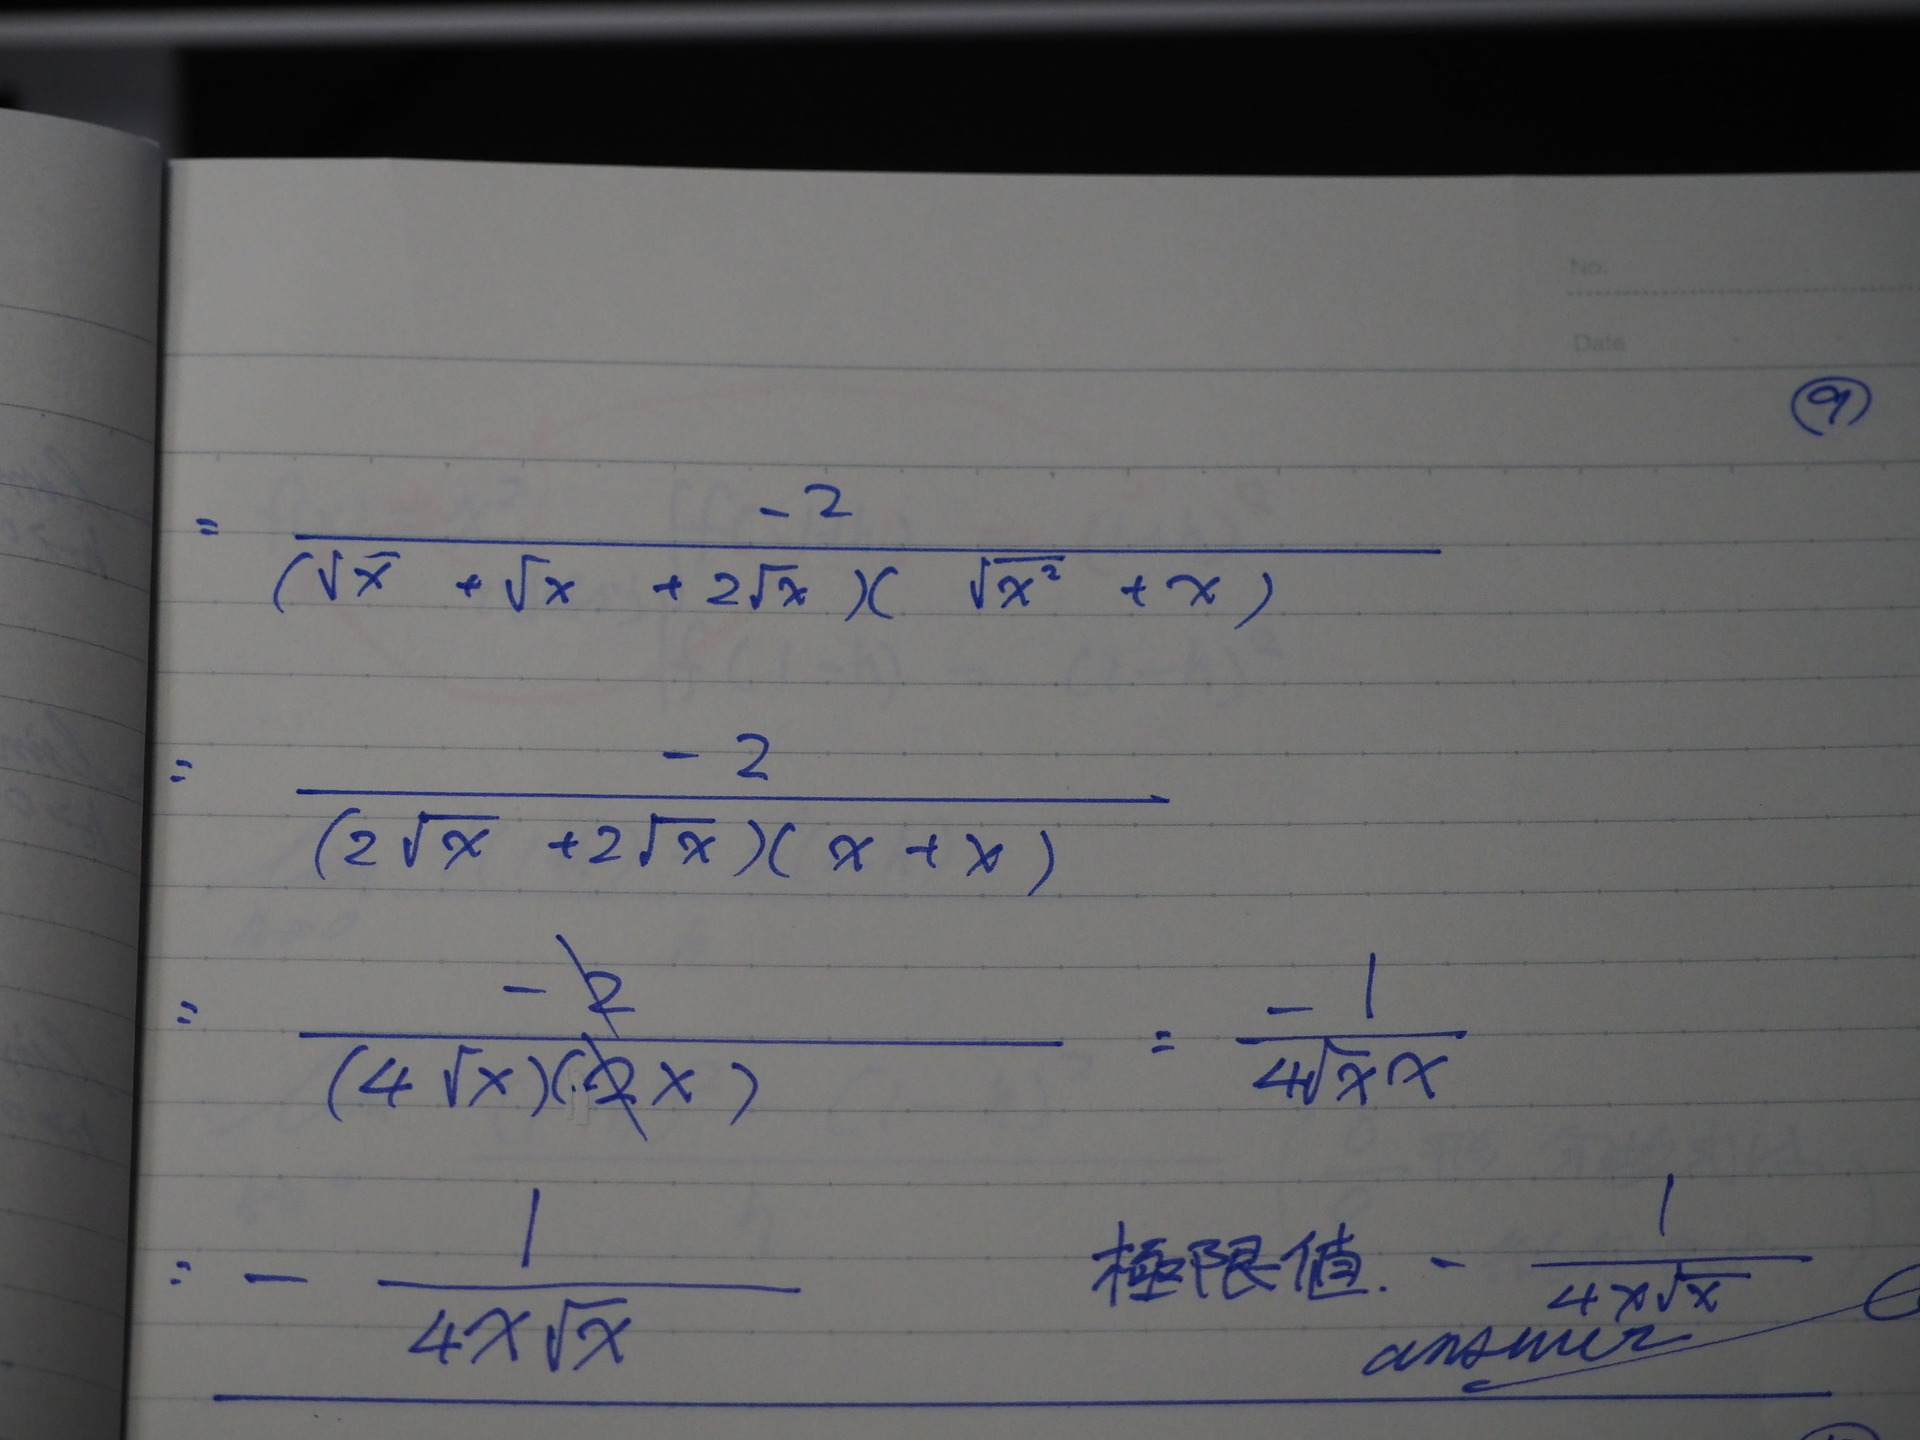 No.
Date
(9)
= -2 / (√x + √x + 2√x)(√x² + x)
= -2 / (2√x + 2√x)(x + x)
= -2 / (4√x)(2x) = -1 / 4√x x
= - 1 / 4x√x 極限値. - 1 / 4x√x
answer